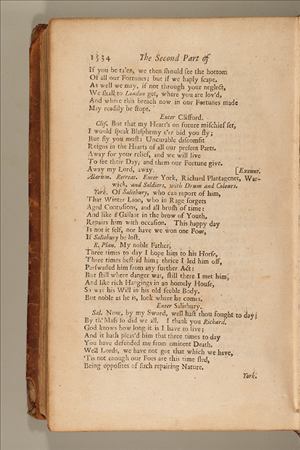 1554 The Second Part of
If you be ta'en, we then should see the bottom
Of all our Fortunes; but if we haply scape,
As well we may, if not through your neglect,
We shall to London get, where you are lov'd,
And where this breach now in our Fortunes made
May readily be stopt.
Enter Clifford.
Clif. But that my Heart's on future mischief set,
I would speak Blasphemy e'er bid you fly;
But fly you must: Uncurable discomfit
Reigns in the Hearts of all our present Parts.
Away for your relief, and we will live
To see their Day, and them our Fortune give.
Away my Lord, away. [Exeunt.
Alarum. Retreat. Enter York, Richard Plantagenet, War-
wick, and Soldiers, with Drum and Colours.
York. Of Salisbury, who can report of him,
That Winter Lion, who in Rage forgets
Aged Contusions, and all brush of time:
And like a Gallant in the brow of Youth,
Repairs him with occasion. This happy day
Is not it self, nor have we won one Foot,
If Salisbury be lost.
R. Plan. My noble Father,
Three times to day I hope him to his Horse,
Three times bestrid him; thrice I led him off,
Perswaded him from any further Act:
But still where danger was, still there I met him,
And like rich Hangings in an homely House,
So was his Will in his old feeble Body.
But noble as he is, look where he comes.
Enter Salisbury.
Sal. Now, by my Sword, well hast thou fought to day;
By th' Mass so did we all. I thank you Richard.
God knows how long it is I have to live;
And it hath pleas'd him that three times to day
You have defended me from eminent Death.
Well Lords, we have not got that which we have,
'Tis not enough our Foes are this time fled,
Being opposites of such repairing Nature.
York.